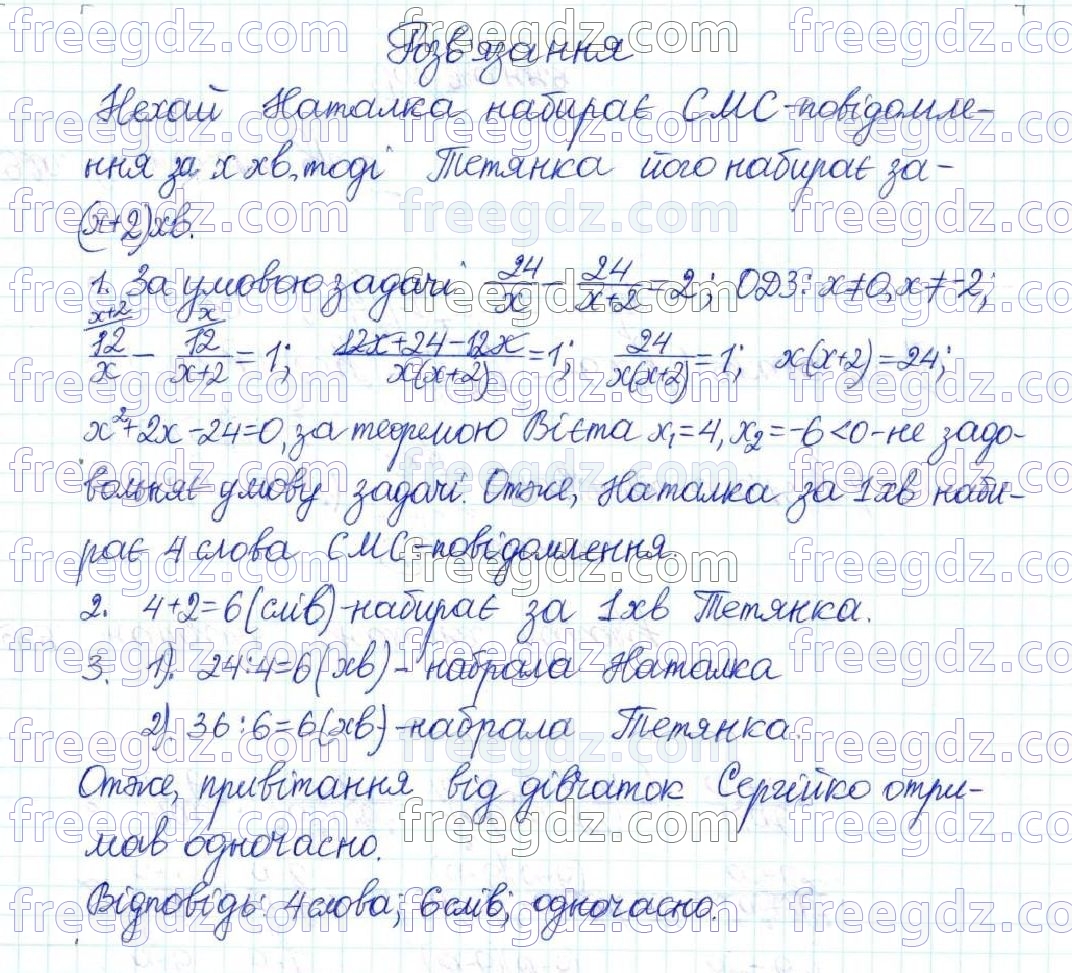 Розв'язання
Нехай Наталка набирає СМС-повідомле-
ння за х хв, тоді Тетянка його набирає за -
(х+2)хв.
1. За умовою задачі 24/x - 24/(x+2) = 2; ОДЗ: x≠0, x≠-2;
x+2 x
12/x - 12/(x+2) = 1; (12x+24-12x)/(x(x+2)) = 1; 24/(x(x+2)) = 1; x(x+2)=24;
x²+2x-24=0, за теоремою Вієта x₁=4, x₂=-6<0-не задо-
вольняє умову задачі. Отже, Наталка за 1хв наби-
рає 4 слова СМС-повідомлення.
2. 4+2=6(слів)-набирає за 1хв Тетянка.
3. 1). 24:4=6(хв)- набрала Наталка
2). 36:6=6(хв)-набрала Тетянка.
Отже, привітання від дівчаток Сергійко отри-
мав одночасно.
Відповідь: 4слова; 6слів; одночасно.
freegdz.com